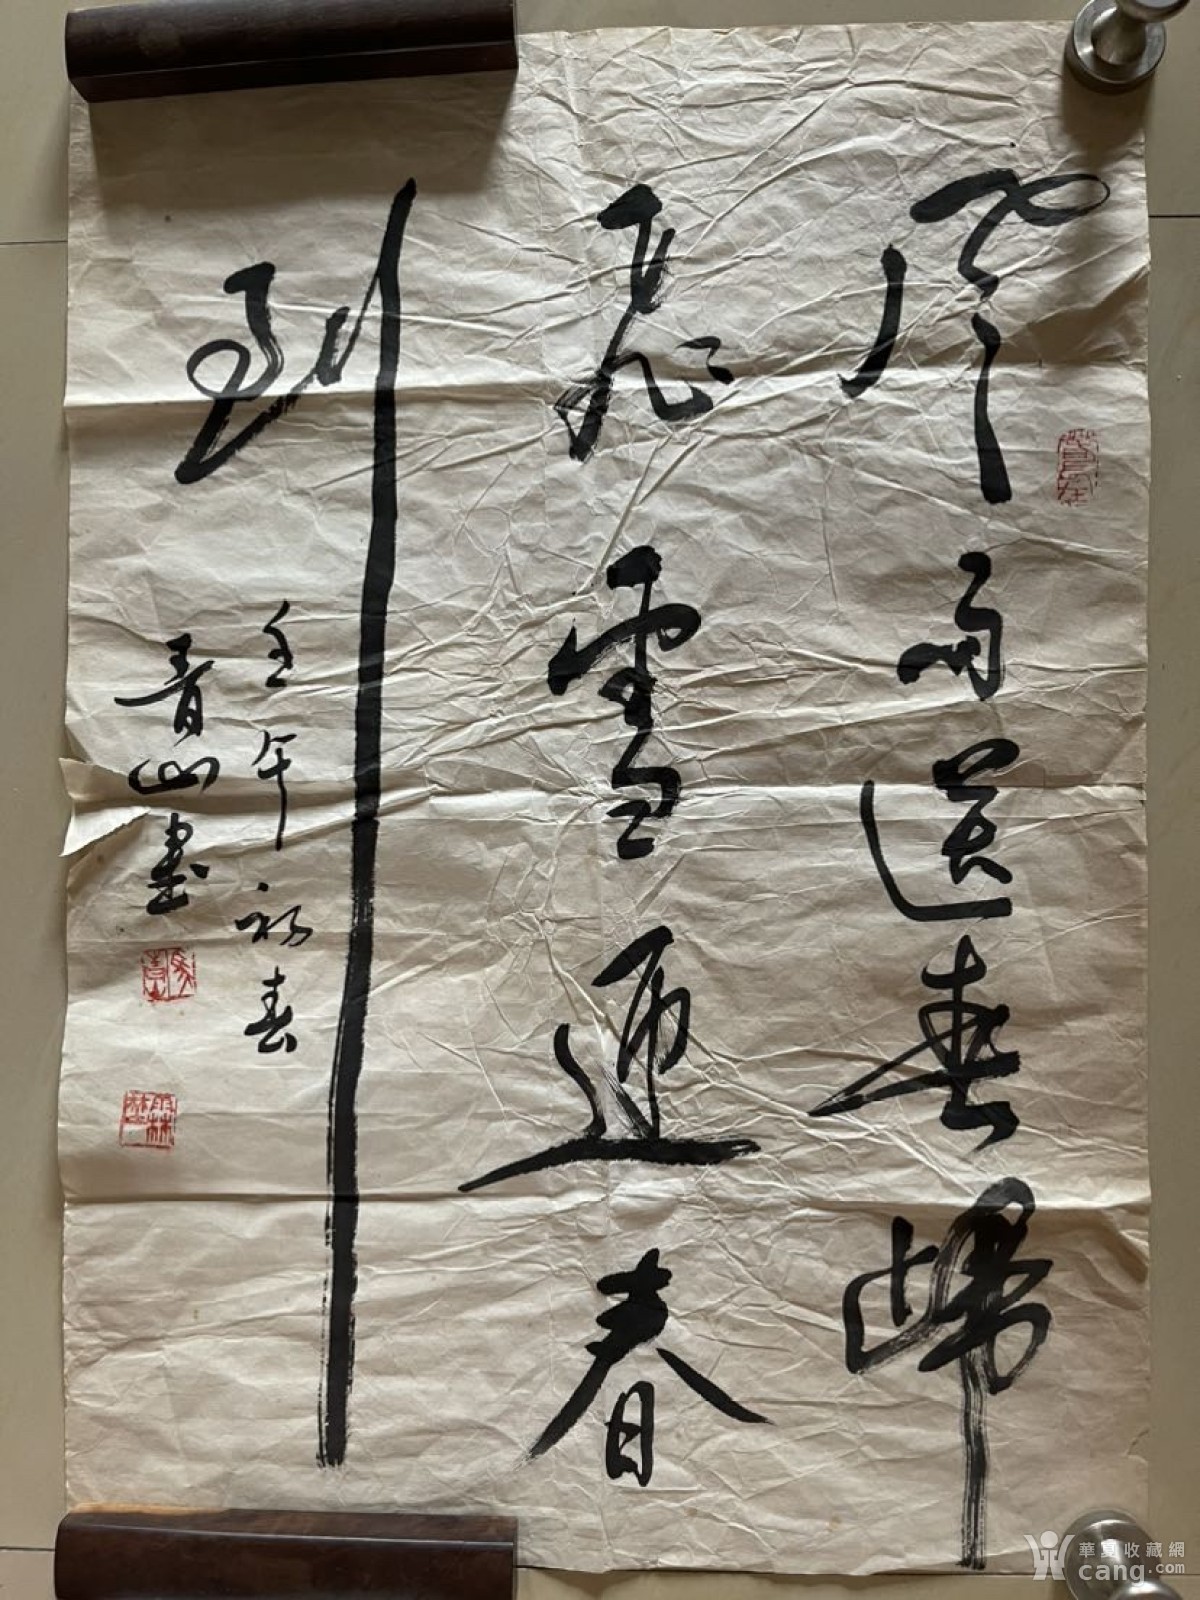 風雨送春歸
飛雪迎春
到
壬午初春
青山書
華夏收藏網
cang.com